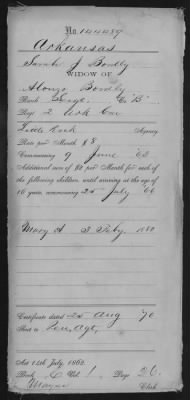 No. 144489
Arkansas
Sarah J Bondly
WIDOW OF
Alonzo Bondly
Rank Serge. Co "B"
Reg't 2 Ark Cav
Little Rock Agency
Rate per Month $8
Commencing 9 June '65
Additional sum of $2 per Month for each of
the following children, until arriving at the age of
16 years, commencing 25 July '66
Mary A 3 Feby. 1880
Certificate dated 25 Aug '70
Sent to Pen. Agt,
Act 14th July, 1862.
Book C Vol. 1 Page 26.
Mayne Clerk